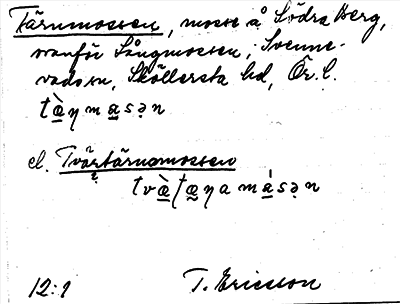 Tärnmossen, mosse å Södra Berg,
ovanför Långmossen, Svenne-
vads sn, Sköllersta hd, Ör. l.
tæ̀ŋmasən
el. Tvärtärnamossen
tvæ̀ʈæŋamásən
12:1 T. Ericsson